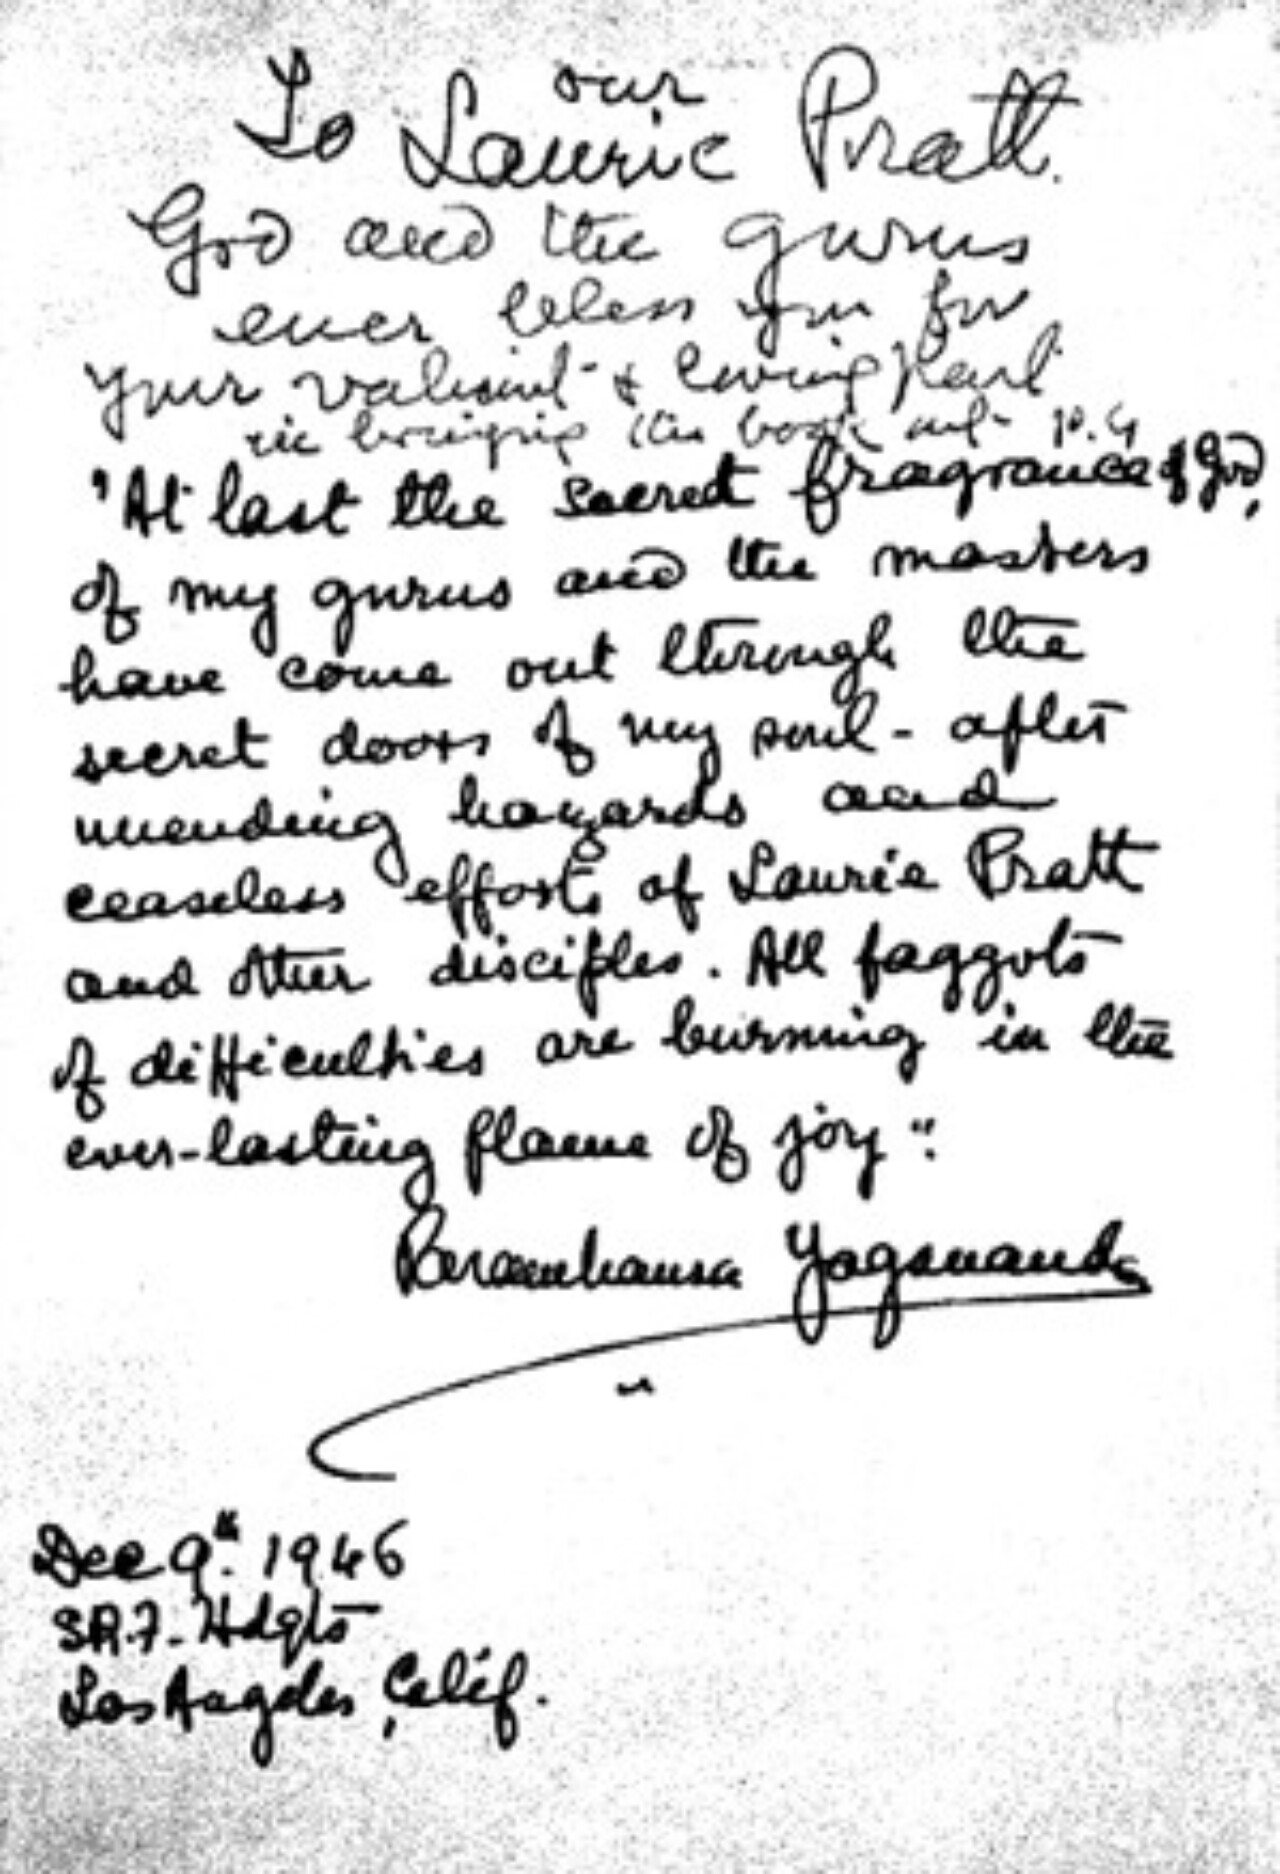 our
To Laurie Pratt.
God and the gurus
ever bless you for
your valiant & loving part
in bringing this book out P.Y
"At last the secret fragrance of God,
of my gurus and the masters
have come out through the
secret doors of my soul - after
unending hazards and
ceaseless efforts of Laurie Pratt
and other disciples. All faggots
of difficulties are burning in the
ever-lasting flame of joy".
Paramhansa Yogananda
Dec 9th. 1946
S.R.F. Hdqts
Los Angeles, Calif.